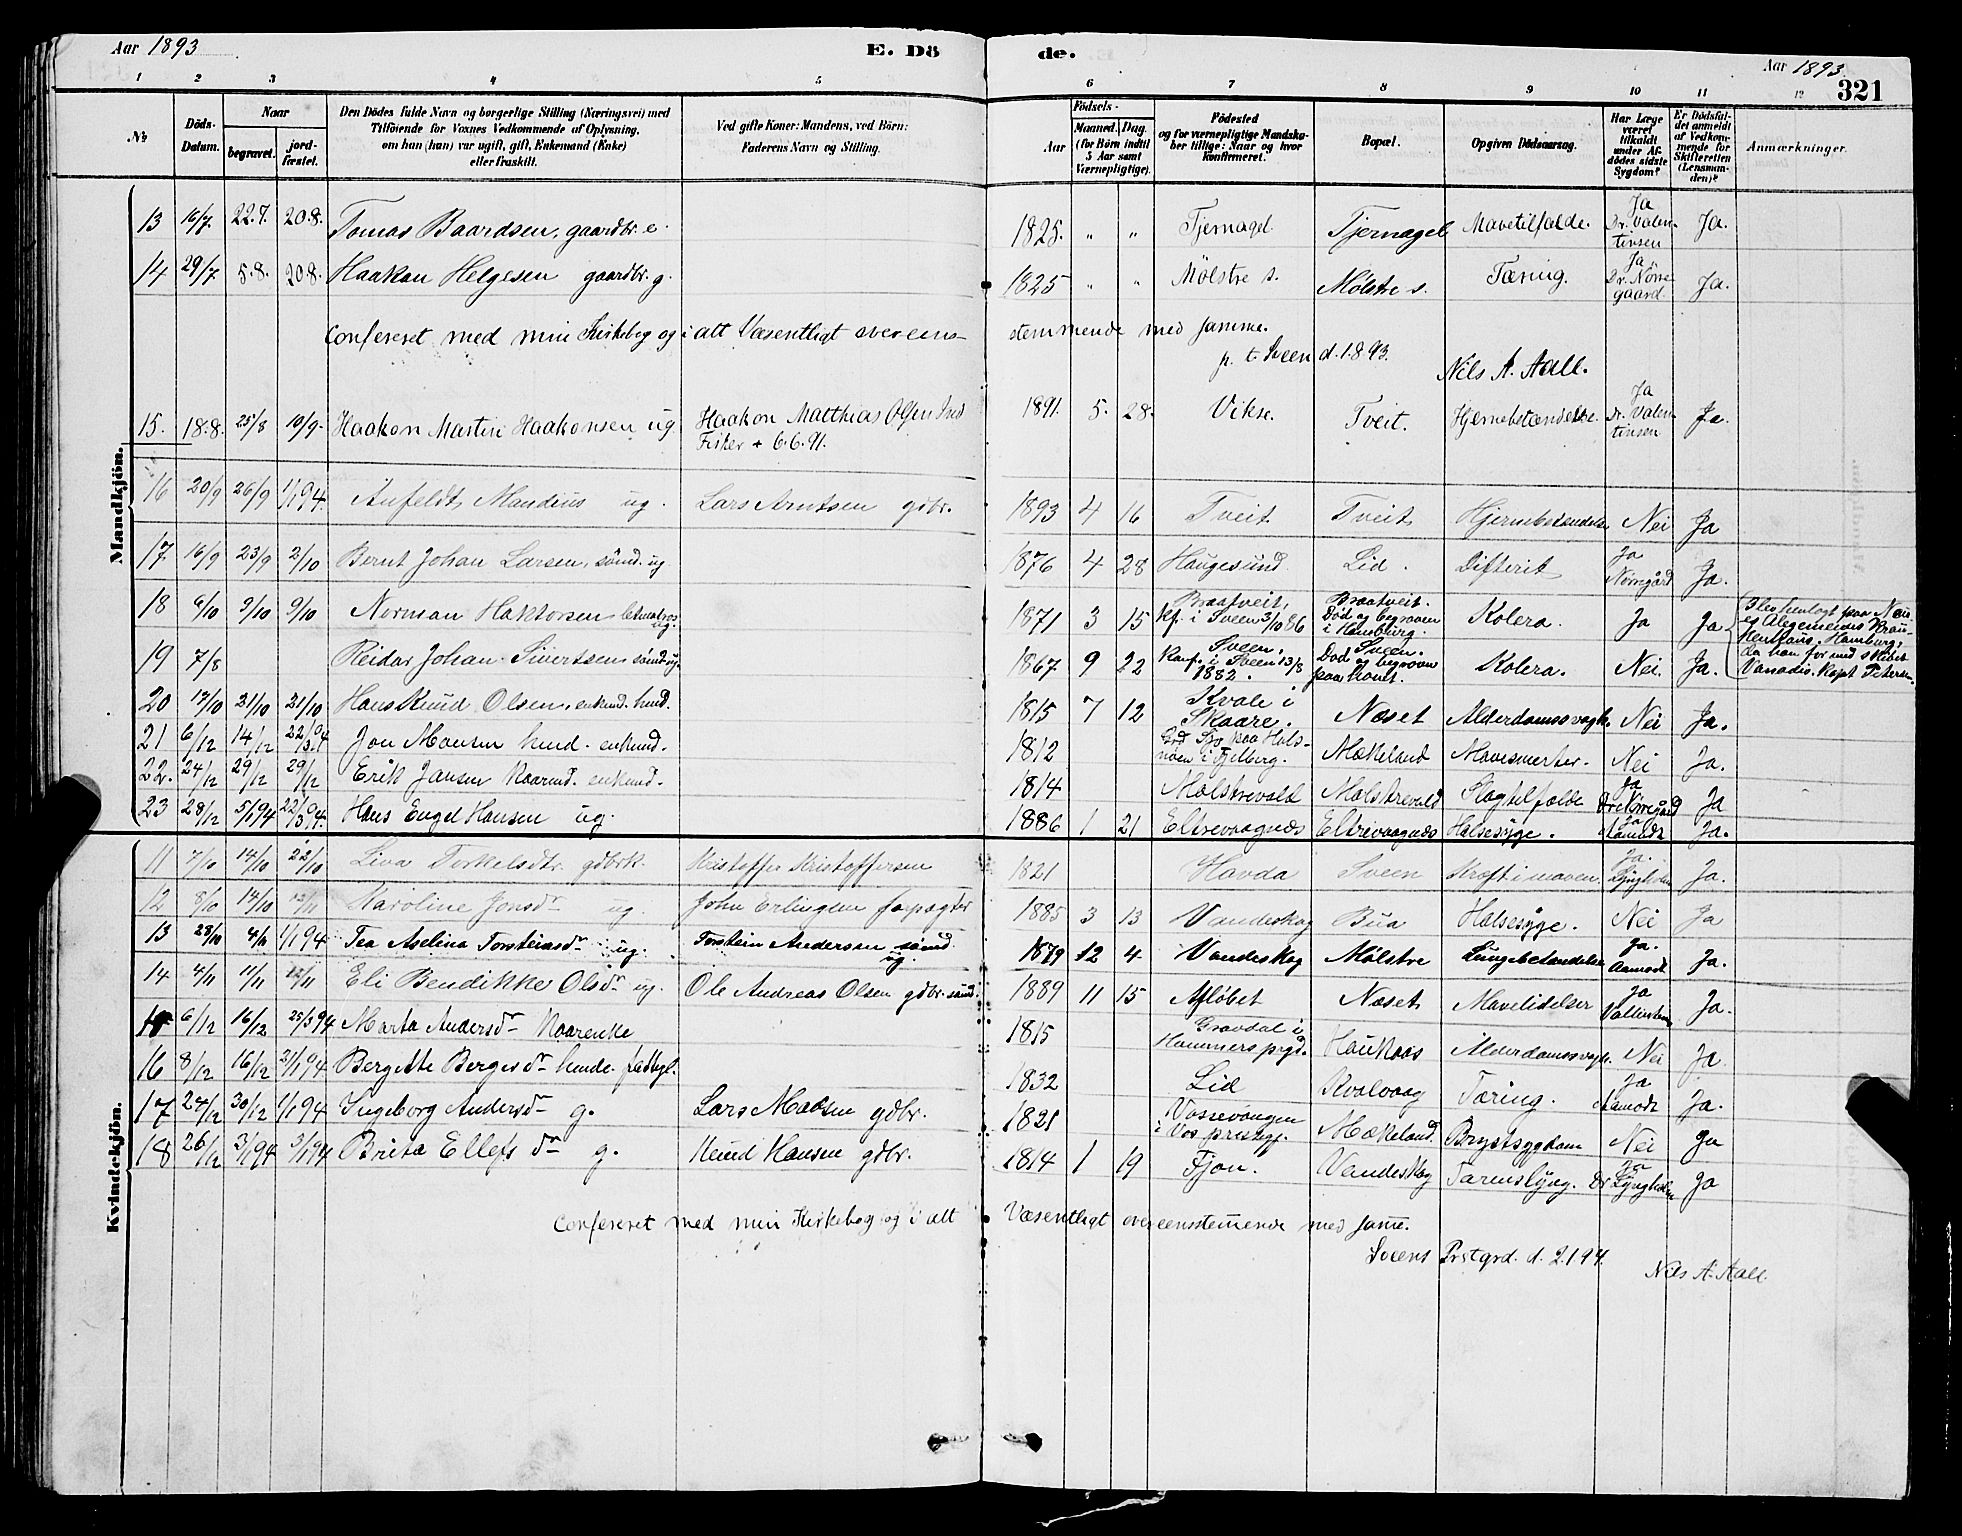 Aar 1893
E. Dö
de.
Aar 1893.
321
1 2 3 4 5 6 7 8 9 10 11 12
№
Döds-
Datum.
Naar
begravet.
jord-
fæstet.
Den Dödes fulde Navn og borgerlige Stilling (Næringsvei) med
Tilföiende for Voxnes Vedkommende af Oplysning,
om han (hun) var ugift, gift, Enkemand (Enke)
eller fraskilt.
Ved gifte Koner: Mandens, ved Börn:
Faderens Navn og Stilling.
Födsels-
Aar
Maaned. Dag.
(for Börn indtil
5 Aar samt
Værnepligtige).
Födested
og for værnepligtige Mandska-
ber tillige: Naar og hvor
konfirmeret.
Bopæl.
Opgiven Dödsaarsag.
Har Læge
været
tilkaldt
under Af-
dödes sidste
Sygdom?
Er Dödsfal-
det anmeldt
af Vedkom-
mende for
Skifteretten
(Lensman-
den)?
Anmærkninger.
Mandkjön.
13 16/7. 22.7. 20.8. Tomas Baardsen, gaardbr. e. 1825. " " Tjernagel Tjernagel Mavetilfælde. Ja Dr. Valen-tinsen Ja.
14 29/7 5.8. 20.8. Haakon Helgesen gaardbr. g. 1825 " " Mölstre s. Mölstre s. Tæring. Ja Dr. Nörre-gaard. Ja.
Confereret med min Kirkebog og i alt Væsentligt overens-
stemmende med samme.
p. t. Sveen d. 1.8.93.
Nils A. Aall.
15. 18.8. 25/8 10/9. Haakon Martin Haakonsen ug. Haakon Matthias Olsen Fisker + 6.6.91. 1891. 5. 28. Vikse. Tveit. Hjernebetændelse. Ja Dr. Valen-tinsen Ja.
16 20/9 26/9 1/1 94. Anfeldt Mandius ug. Lars Arntsen gdbr. 1893 4 16 Tveit Tveit Hjernebetændelse Nei Ja
17 16/9 23/9 2/10 Bernt Johan Larsen, sömd. ug. 1876 4 28 Haugesund Lid. Difterit Ja Nörregård Ja.
18 6/10 9/10 9/10 Norman Haktorsen letmatros ug. 1871 3 15 Braatveit, Kf. i Sveen 3/10 86 Braatveit. Död og begraven i Hamburg. Kolera. Ja Ja
19 7/8 Reidar Johan Sivertsen sömd. ug. 1867 9 22 Sveen, Konf. i Sveen 13/8 1882. Sveen. Död og begraven paa havet. Kolera. Nei. Ja.
da han for med skibet
Vanadis, Kapt. Petersen.
20 19/10 21/10 21/10 Hans Knud Olsen, enkemd. husmd. 1815 7 12 Kvale i Skaare. Næset Alderdomssvagh. Nei Ja.
21 6/12 14/12 Jon Monsen husmd. enkemd. 1812 nöen i Fjelberg. Mækeland Mavesmerter. Nei Ja.
22. 24/12 29/12 29/12 Erik Jansen Kaarmd. enkemd. 1814 Mölstrevold Mölstrevold Slagtilfælde Ja Dr. Nörregård Ja
23 28/12 5/1 94 Hans Engel Hansen ug. 1886 1 21 Eltrevaagnæs Eltrevaagnæs Halsesyge. Ja Aamodt Ja.
Kvindekjön.
11 7/10 14/10 22/10 Liva Torkelsdtr. gdbrk. Kristoffer Kristoffersen 1821 Havda Sveen Kræft i maven. Ja. Lyngholm Ja.
12 8/10 14/10 Karoline Jonsdr ug. John Erlingsen forpagter 1885 3 13 Vandeskog Bua Halsesyge. Nei Ja
13 28/10 4/11 1/1 94 Tea Aselina Torsteinsdr ug. Torstein Andersen sömd. ug. 1879 12 4 Vandeskog Mölstre Lungebetændelse Ja. Aamodt Ja.
14 4/11 11/11 Eli Bendikke Olsdr ug. Ole Andreas Olsen gdbr. sömd. 1889 11 15 Aflöbet Næset Mavelidelser Ja Ja.
15 6/12 16/12 25/3 94 Marta Andersdr Kaarenke 1815 Gravdal i Hammers prgd. Haukaas Alderdomssvagh. Nei Ja
16 8/12 16/12 Bergitte Bergesdr 1832 Lid Kvalvaag Tæring. Ja Aamodt Ja.
17 24/12 30/12 1/1 94 Ingeborg Andersdr g. Lars Matsen gdbr. 1821 Vossevangen i Vos prestegj. Mækeland. Brystsygdom Nei Ja
18 26/12 3/1 94 3/1 94 Brita Ellefsdr g. Knud Hansen gdbr. 1814 1 19 Fjon. Vandeskog Tarenslyng. Ja Dr. Lyngholm Ja
Confereret med min Kirkebog og i alt
Væsentligt overensstemende med same.
Sveens Prstgrd. d. 2.1.94.
Nils A. Aall.